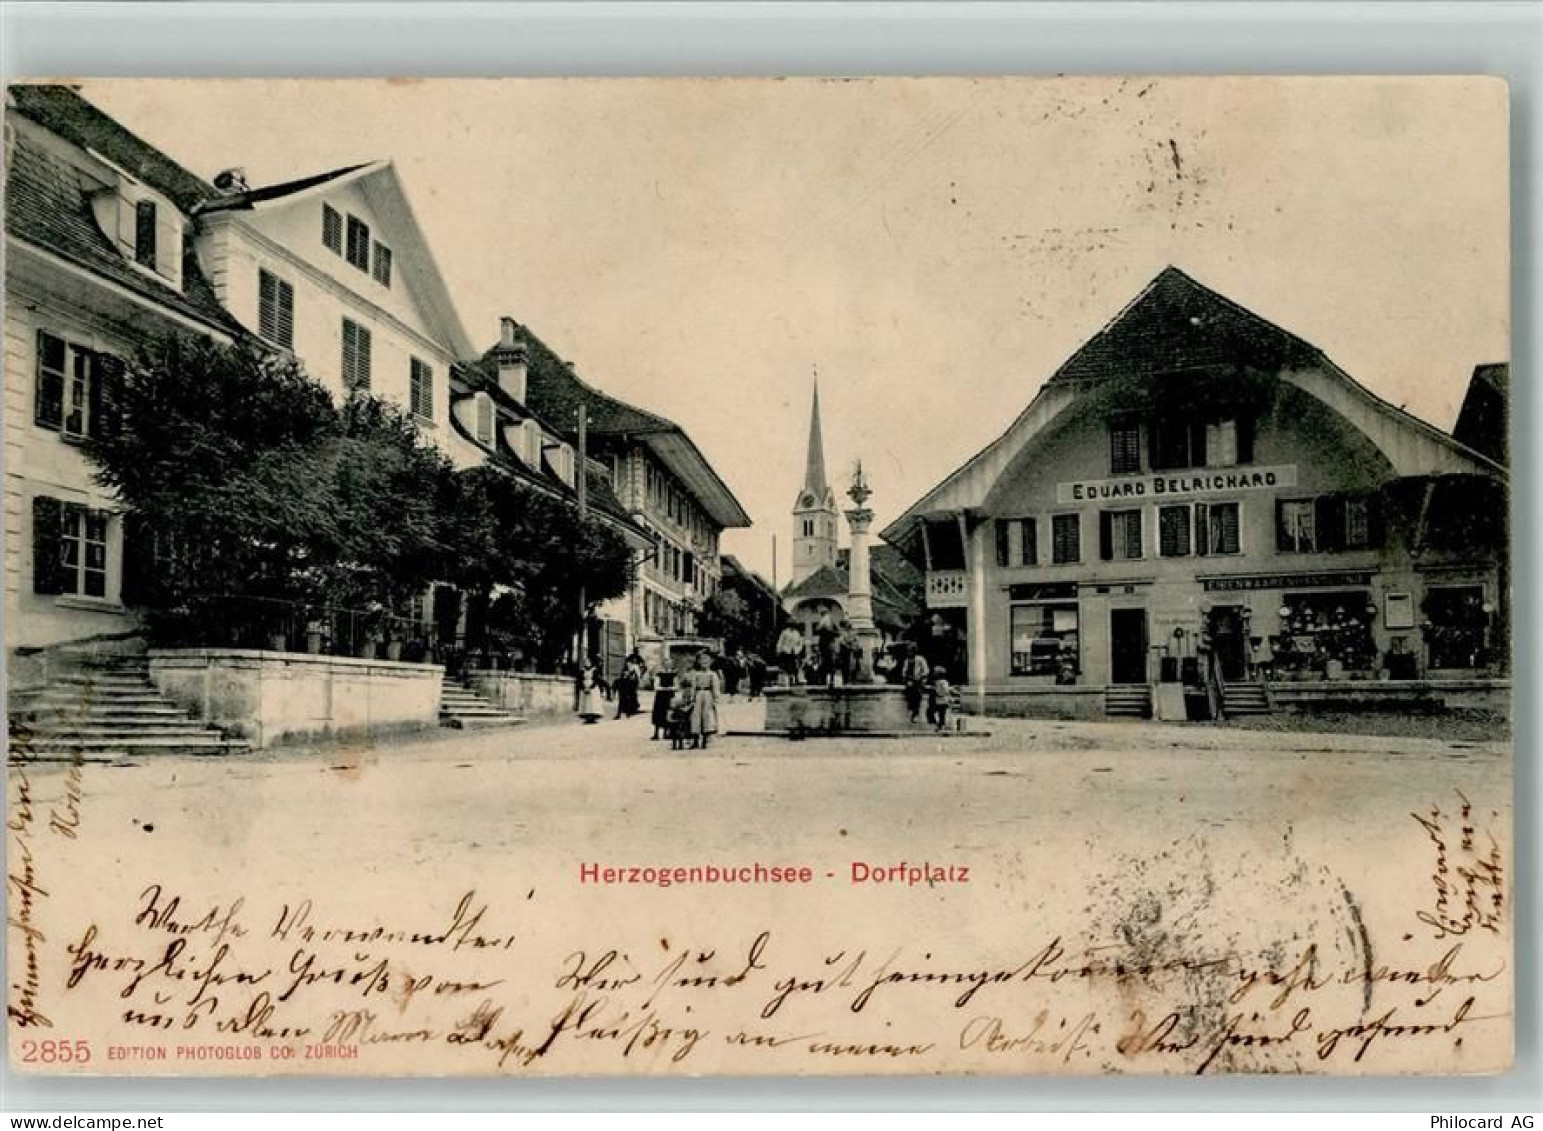 EDUARD BELRICHARD
EISENWAARENHANDLUNG
Herzogenbuchsee - Dorfplatz
Werthe Verwandten!
Herzlichen Gruß von
uns allen
Wir sind gut heimgekommen gehe wieder
fleißig an meine Arbeit. Wir sind gesund.
Erwarte
auch eine
Karte.
den
2855 EDITION PHOTOGLOB CO. ZÜRICH
Philocard AG
delcampe.net